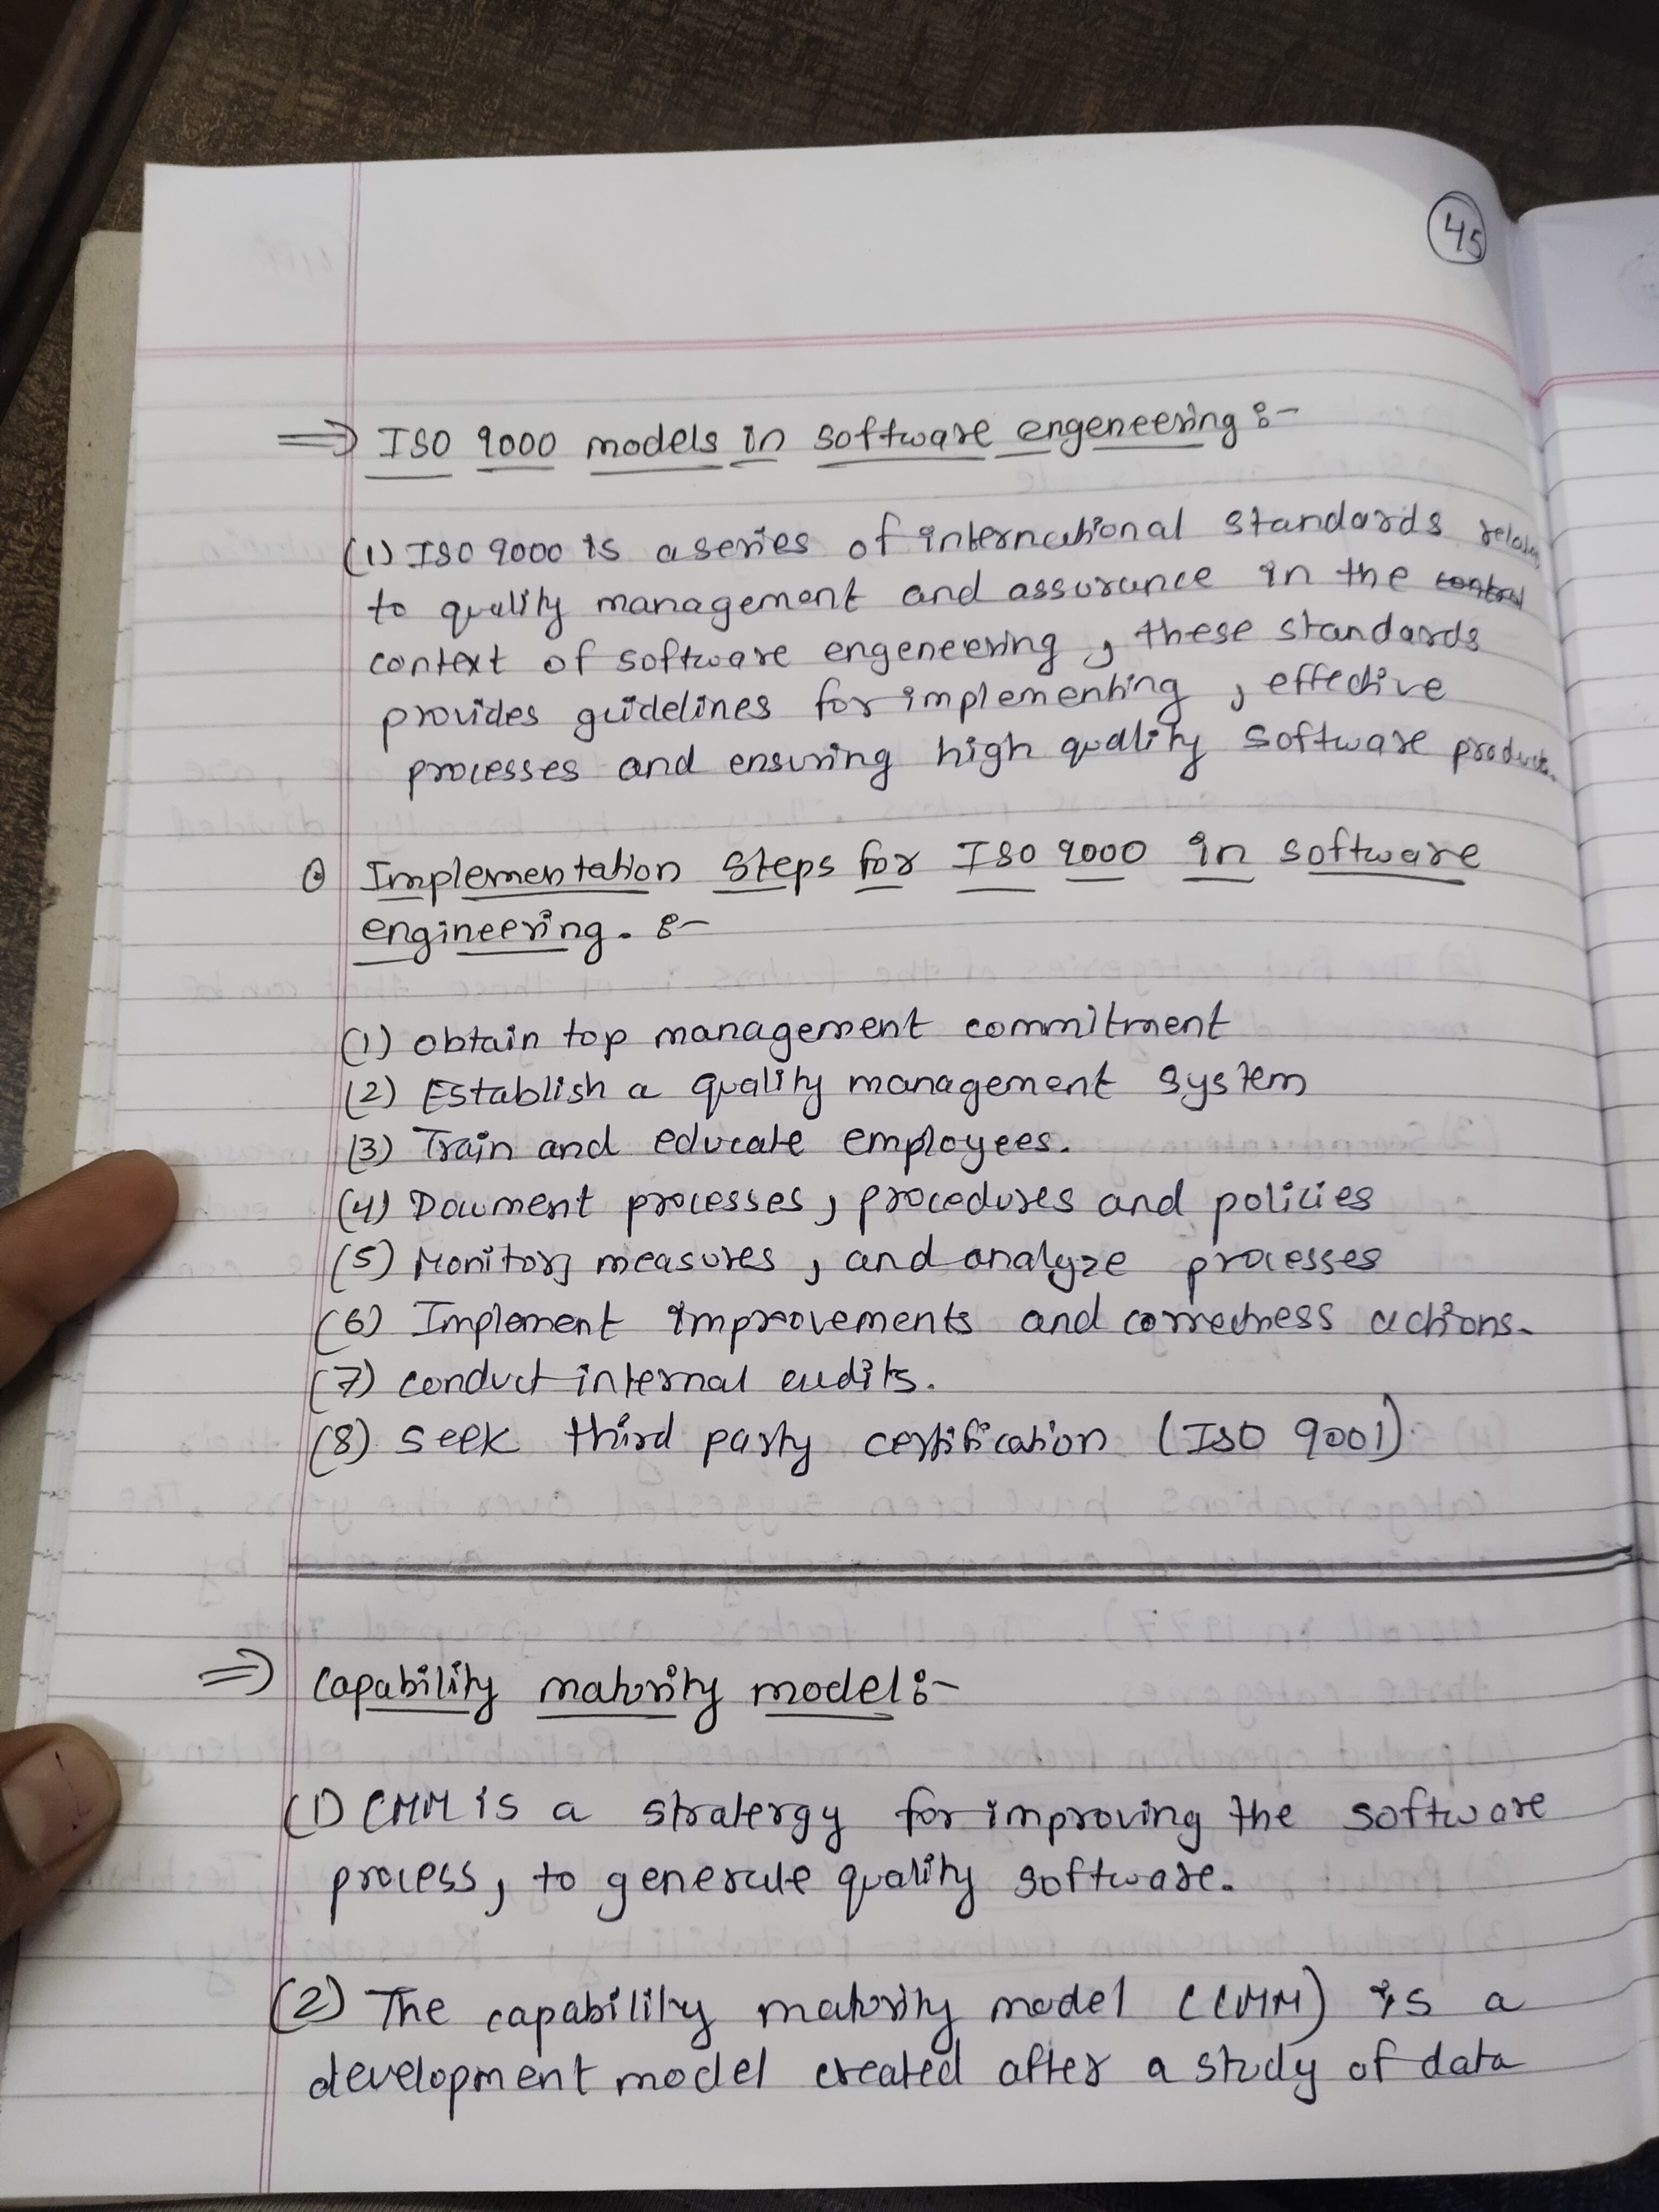 45
⇒ ISO 9000 models in software engeneering :-
(1) ISO 9000 is a series of international standards
to quality management and assurance in the control
context of software engeneering, these standards
provides guidelines for implementing, effective
processes and ensuring high quality software product.
Implementation steps for ISO 9000 in software
engineering. :-
(1) obtain top management commitment
(2) Establish a quality management system
(3) Train and educate employees.
(4) Document processes, procedures and policies
(5) Monitor, measures, and analyze processes
(6) Implement improvements and correctness actions.
(7) conduct internal audits.
(8) seek third party certification (ISO 9001)
⇒ capability maturity model :-
(1) CMM is a stratergy for improving the software
process, to generate quality software.
(2) The capability maturity model (CMM) is a
development model created after a study of data